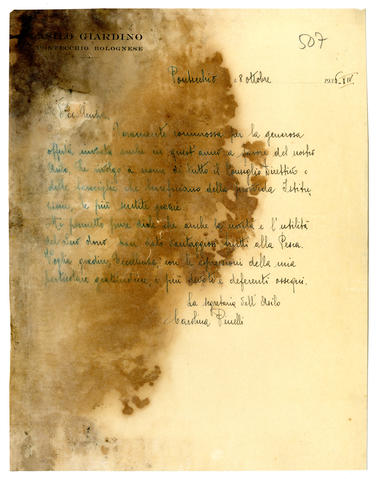 ASILO GIARDINO
PONTECCHIO BOLOGNESE
507
Pontecchio, 8 ottobre
Eccellenza,
Veramente commossa per la generosa
offerta inviata anche in quest'anno a favore del nostro
Asilo, Le invio a nome di tutto il Consiglio Direttivo e
delle famiglie che beneficiano della Istitu-
zione, le più sentite grazie.
Mi permetto pure dirle che anche la novità e l'utilità
dono effetti alla Pesca.
Voglia gradire, Eccellenza con le espressioni della mia
particolare gratitudine, i più devoti e deferenti ossequi.
La segretaria dell'Asilo
Carolina Pinelli